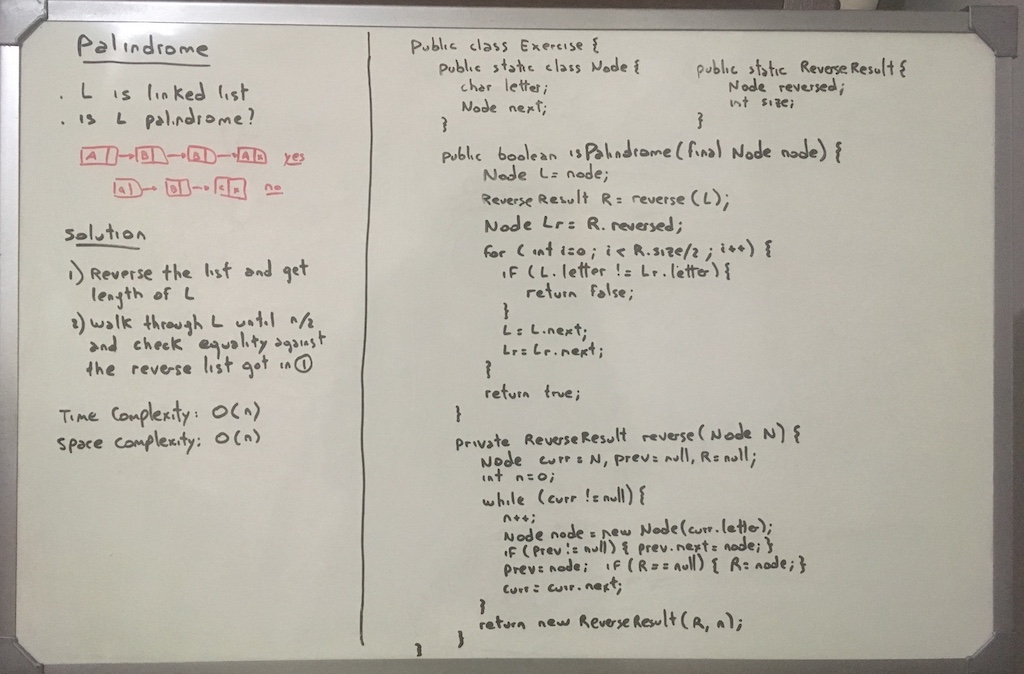 Palindrome
. L is linked list
. is L palindrome?
A B B A x yes
A B C x no
Solution
1) Reverse the list and get
length of L
2) walk through L until n/2
and check equality against
the reverse list got in ①
Time Complexity: O(n)
Space Complexity: O(n)
Public class Exercise {
Public static class Node {
char letter;
Node next;
}
public static ReverseResult {
Node reversed;
int size;
}
Public boolean isPalindrome (final Node node) {
Node L = node;
Reverse Result R = reverse (L);
Node Lr = R. reversed;
for ( int i=0 ; i < R.size/2 ; i++) {
if (L. letter != Lr. letter) {
return false;
}
L = L.next;
Lr = Lr.next;
}
return true;
}
private ReverseResult reverse( Node N) {
Node curr = N, prev = null, R = null;
int n=0;
while (curr != null) {
n++;
Node node = new Node(curr.letter);
if (prev != null) { prev.next = node; }
prev = node; if (R == null) { R = node; }
curr = curr.next;
}
return new ReverseResult (R, n);
}
}